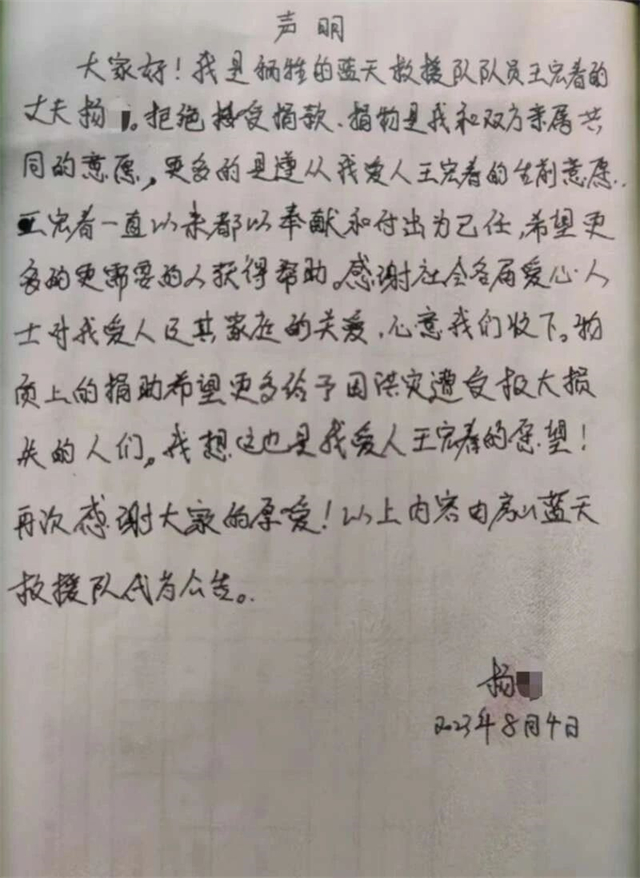 声明
大家好！我是牺牲的蓝天救援队队员王宏春的
丈夫杨。拒绝接受捐款、捐物是我和双方亲属共
同的意愿，更多的是遵从我爱人王宏春的生前意愿.
王宏春一直以来都以奉献和付出为己任,希望更
多的更需要的人获得帮助。感谢社会各届爱心人
士对我爱人及其家庭的关爱,心意我们收下。物
质上的捐助希望更多给予因洪灾遭受极大损
失的人们。我想这也是我爱人王宏春的愿望！
再次感谢大家的厚爱！以上内容由房山蓝天
救援队代为公告。
杨
2023年8月4日